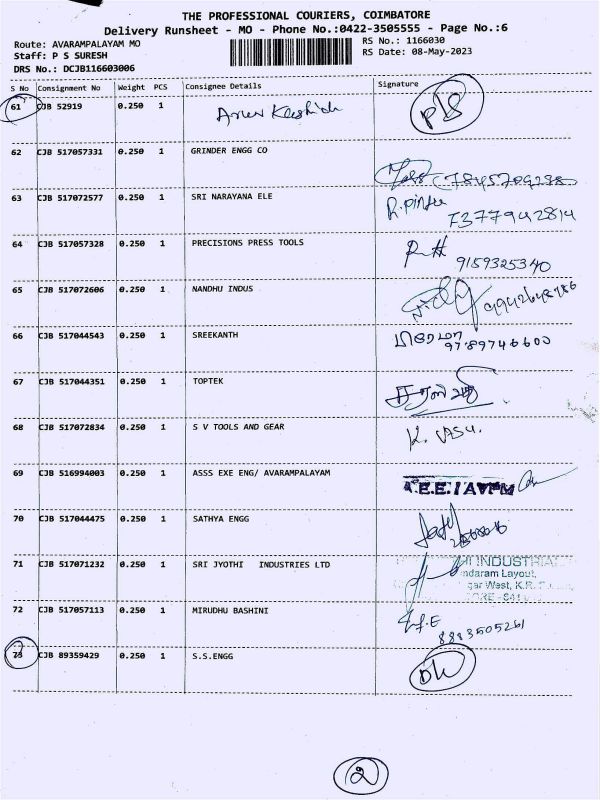 THE PROFESSIONAL COURIERS, COIMBATORE
Delivery Runsheet - MO - Phone No.:0422-3505555 - Page No.:6
Route: AVARAMPALAYAM MO
RS No.: 1166030
Staff: P S SURESH
RS Date: 08-May-2023
DRS No.: DCJB116603006
S No Consignment No Weight PCS Consignee Details Signature
61 CJB 52919 0.250 1
62 CJB 517057331 0.250 1 GRINDER ENGG CO
63 CJB 517072577 0.250 1 SRI NARAYANA ELE
64 CJB 517057328 0.250 1 PRECISIONS PRESS TOOLS
9159325340
65 CJB 517072606 0.250 1 NANDHU INDUS
66 CJB 517044543 0.250 1 SREEKANTH
9789746600
67 CJB 517044351 0.250 1 TOPTEK
68 CJB 517072834 0.250 1 S V TOOLS AND GEAR K. VASU.
69 CJB 516994003 0.250 1 ASSS EXE ENG/ AVARAMPALAYAM
70 CJB 517044475 0.250 1 SATHYA ENGG
71 CJB 517071232 0.250 1 SRI JYOTHI INDUSTRIES LTD
72 CJB 517057113 0.250 1 MIRUDHU BASHINI
8883505261
73 CJB 89359429 0.250 1 S.S.ENGG
2